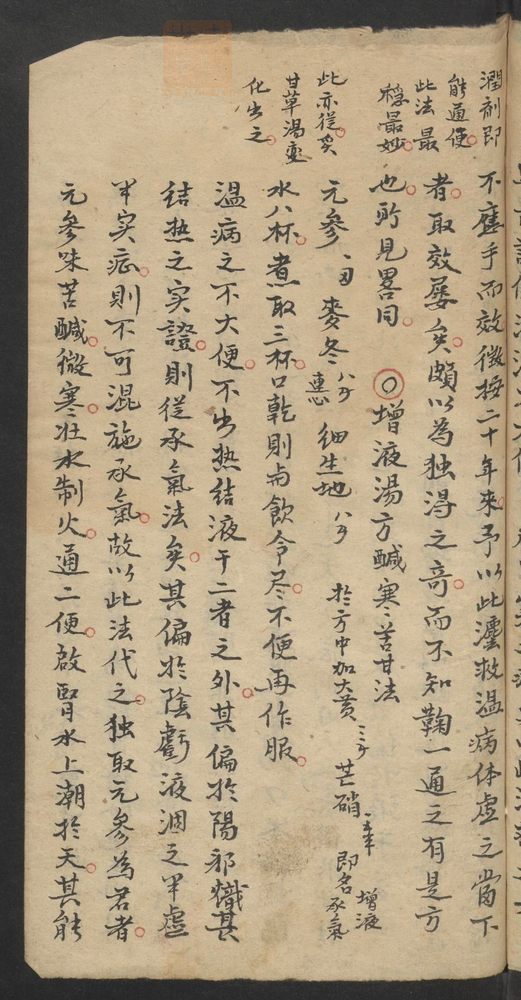 潤剤即
能通便
此法最
穩最妙
此亦從炙
甘草湯変
化出之
不應手而效微按二十年来予以此法救温病体虚之當下
者取效屡矣頗以為独淂之竒而不知鞠一通之有是方
也所見畧同○增液湯方鹹寒苦甘法
元參 麥冬八夕 連心 細生地八夕 扵方中加大黄三夕芒硝 即名增液承氣
水八杯煮取三杯口乾則与飲令尽不便再作服
温病之不大便不出热結液干二者之外其偏扵陽邪熾甚
結热之实證則從承氣法矣其偏扵陰虧液涸之半虚
半实症則不可混施承氣故以此法代之独取元參為君者
元參味苦鹹微寒壮水制火通二便啟腎水上潮扵天其能